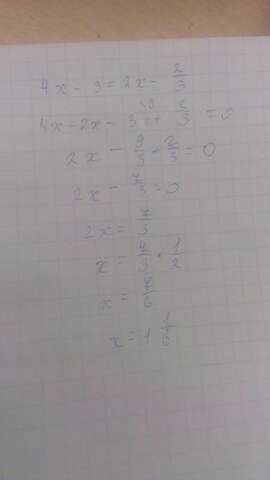 4x - 3 = 2x - 2/3
4x - 2x - 3 + 2/3 = 0
2x - 9/3 + 2/3 = 0
2x - 7/3 = 0
2x = 7/3
x = 7/3 · 1/2
x = 7/6
x = 1 1/6